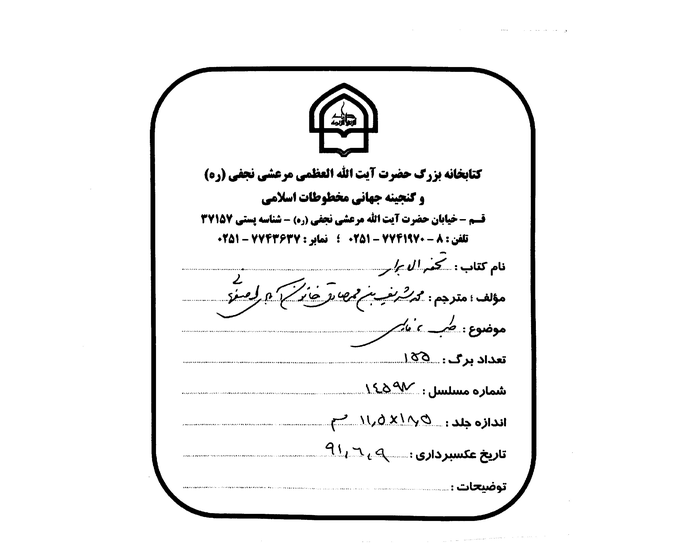 کتابخانه بزرگ حضرت آیت الله العظمی مرعشی نجفی (ره)
و گنجینه جهانی مخطوطات اسلامی
قـم - خیابان حضرت آیت الله مرعشی نجفی (ره) - شناسه پستی ۳۷۱۵۷
تلفن : ۸ - ۷۷۴۱۹۷۰ - ۰۲۵۱ ؛ نمابر : ۷۷۴۳۶۳۷ - ۰۲۵۱
نام کتاب : تحفه الابرار
مؤلف ؛ مترجم : محمد شریف بن محمد صادق خاتون آبادی اصفهانی
موضوع : طب ، فارسی
تعداد برگ : ۱۵۵
شماره مسلسل : ۱۴۵۹۷
اندازه جلد : ۱۱٫۵x۱۸٫۵ سم
تاریخ عکسبرداری : ۹۱٫۶٫۹
توضیحات :